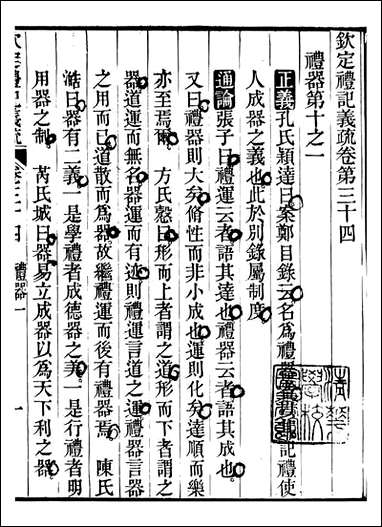 欽定禮記義疏卷第三十四
禮器第十之一
正義孔氏穎達曰案鄭目錄云名為禮器者以其記禮使
人成器之義也此於別錄屬制度
通論張子曰禮運云者語其達也禮器云者語其成也
又曰禮器則大矣脩性而非小成也運則化矣達順而樂
亦至焉爾 方氏慤曰形而上者謂之道形而下者謂之
器道運而無名器運而有迹則禮運言道之運禮器言器
之用而已道散而為器故繼禮運而後有禮器焉 陳氏
澔曰器有二義一是學禮者成德器之美一是行禮者明
用器之制 芮氏城曰器易立成器以為天下利之器
禮器一
一